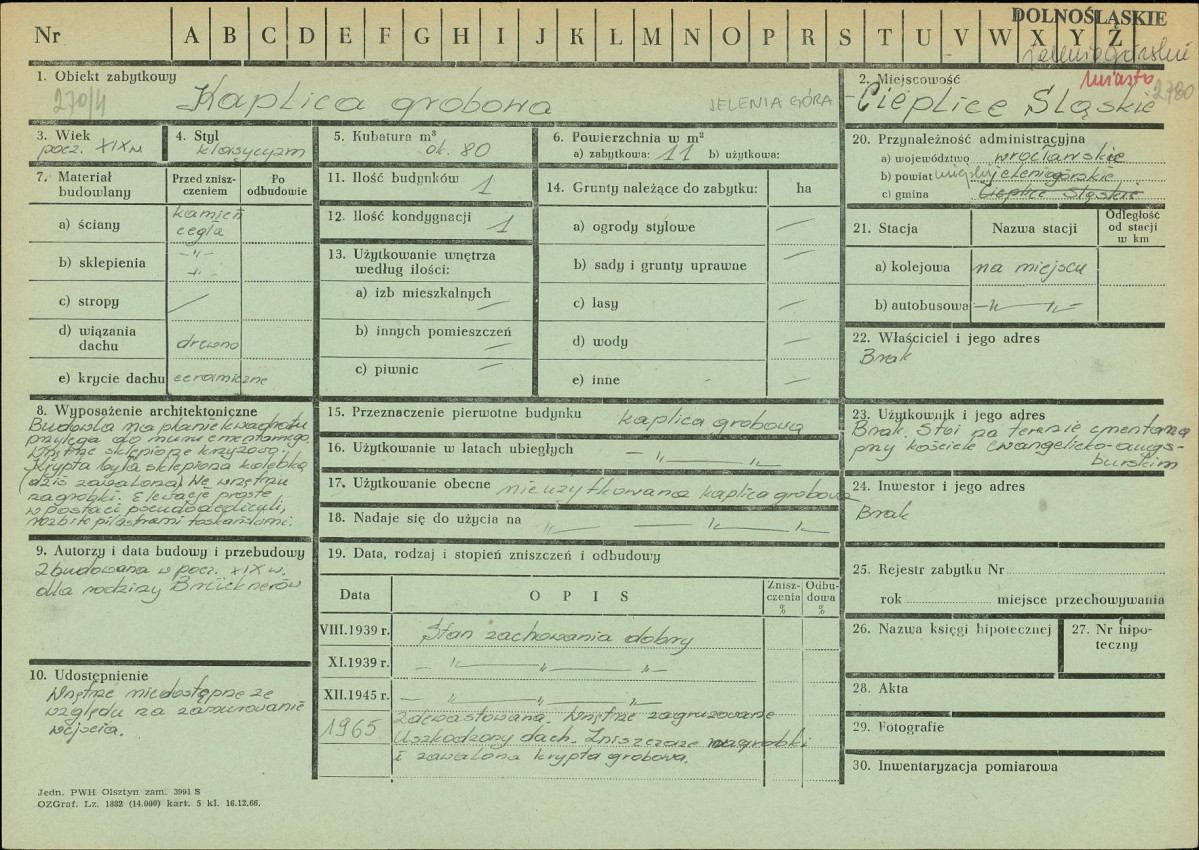 DOLNOŚLĄSKIE
Nr A B C D E F G H I J K L Ł M N O P R S T U V W X Y Z Ż
jeleniogórskie
miasto
1. Obiekt zabytkowy
270/4
2780
Kaplica grobowa
JELENIA GÓRA
2. Miejscowość
Cieplice Śląskie
3. Wiek
pocz. XIX w
4. Styl
klasycyzm
5. Kubatura m³
ok. 80
6. Powierzchnia w m²
a) zabytkowa: 11 b) użytkowa:
7. Materiał budowlany
Przed zniszczeniem
Po odbudowie
a) ściany
kamień
cegła
b) sklepienia
-"-
-"-
c) stropy
d) wiązania dachu
drewno
e) krycie dachu
ceramiczne
11. Ilość budynków 1
12. Ilość kondygnacji 1
13. Użytkowanie wnętrza
według ilości:
a) izb mieszkalnych
b) innych pomieszczeń
c) piwnic
14. Grunty należące do zabytku: ha
a) ogrody stylowe
b) sady i grunty uprawne
c) lasy
d) wody
e) inne
8. Wyposażenie architektoniczne
Budowla na planie kwadratu
przylega do muru cmentarnego.
Wnętrze sklepione krzyżowo.
Krypta była sklepiona kolebką
(dziś zawalona). We wnętrzu
nagrobki. Elewacje proste
w postaci pseudoaediculi,
rozbite pilastrami toskańskimi.
9. Autorzy i data budowy i przebudowy
Zbudowana w pocz. XIX w.
dla rodziny Brücknerów
10. Udostępnienie
Wnętrze niedostępne ze
względu na zamurowanie
wejścia.
15. Przeznaczenie pierwotne budynku
kaplica grobowa
16. Użytkowanie w latach ubiegłych
- " - " -
17. Użytkowanie obecne nieużytkowana kaplica grobowa
18. Nadaje się do użycia na
" - " -
19. Data, rodzaj i stopień zniszczeń i odbudowy
Data
O P I S
Zniszczenia %
Odbudowa %
VIII.1939 r. Stan zachowania dobry
XI.1939 r. - " - " - " -
XII.1945 r. - " - " - " -
1965 Zdewastowana. Wnętrze zagruzowane
Uszkodzony dach. Zniszczone nagrobki
i zawalona krypta grobowa.
20. Przynależność administracyjna
a) województwo wrocławskie
b) powiat miejski jeleniogórskie
c) gmina Cieplice Śląskie
21. Stacja
Nazwa stacji
Odległość od stacji w km
a) kolejowa na miejscu
b) autobusowa -"- "-
22. Właściciel i jego adres
Brak
23. Użytkownik i jego adres
Brak. Stoi na terenie cmentarza
przy kościele ewangelicko-augs-
burskim
24. Inwestor i jego adres
Brak
25. Rejestr zabytku Nr
rok miejsce przechowywania
26. Nazwa księgi hipotecznej
27. Nr hipo-
teczny
28. Akta
29. Fotografie
30. Inwentaryzacja pomiarowa
Jedn. PWH Olsztyn zam. 3991 S
OZGraf. Lz. 1882 (14.000) kart. 5 kl. 16.12.66.